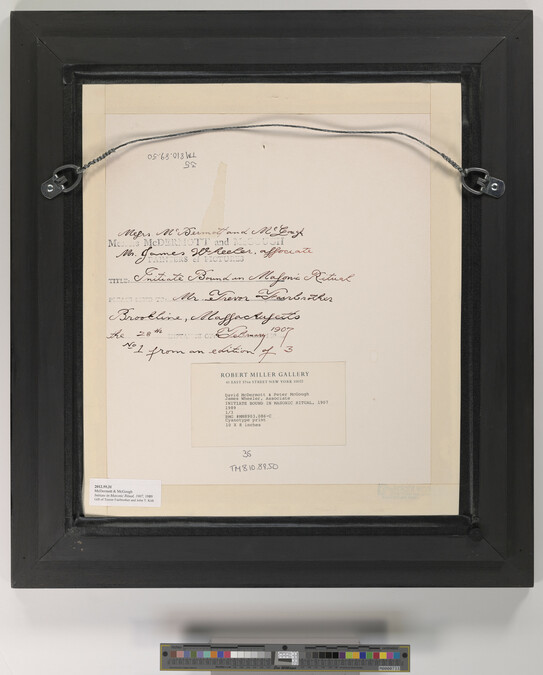 TM 810.89.50
35
Mssrs McDermott and McGough
Messrs McDERMOTT and McGOUGH
Mr. James Wheeler, associate
PAINTERS of PICTURES
TITLE: Initiate Bound in Masonic Ritual
Mr. Trevor Fairbrother
Brookline, Massachusetts
the 28th February 1907
No 1 from an edition of 3
ROBERT MILLER GALLERY
41 EAST 57TH STREET NEW YORK 10022
David McDermott & Peter McGough
James Wheeler, Associate
INITIATE BOUND IN MASONIC RITUAL, 1907
1989
1/3
Cyanotype print
10 X 8 inches
36
TM 810.89.50
McDermott & McGough
Initiate in Masonic Ritual, 1907, 1989
Gift of Trevor Fairbrother and John T. Kirk